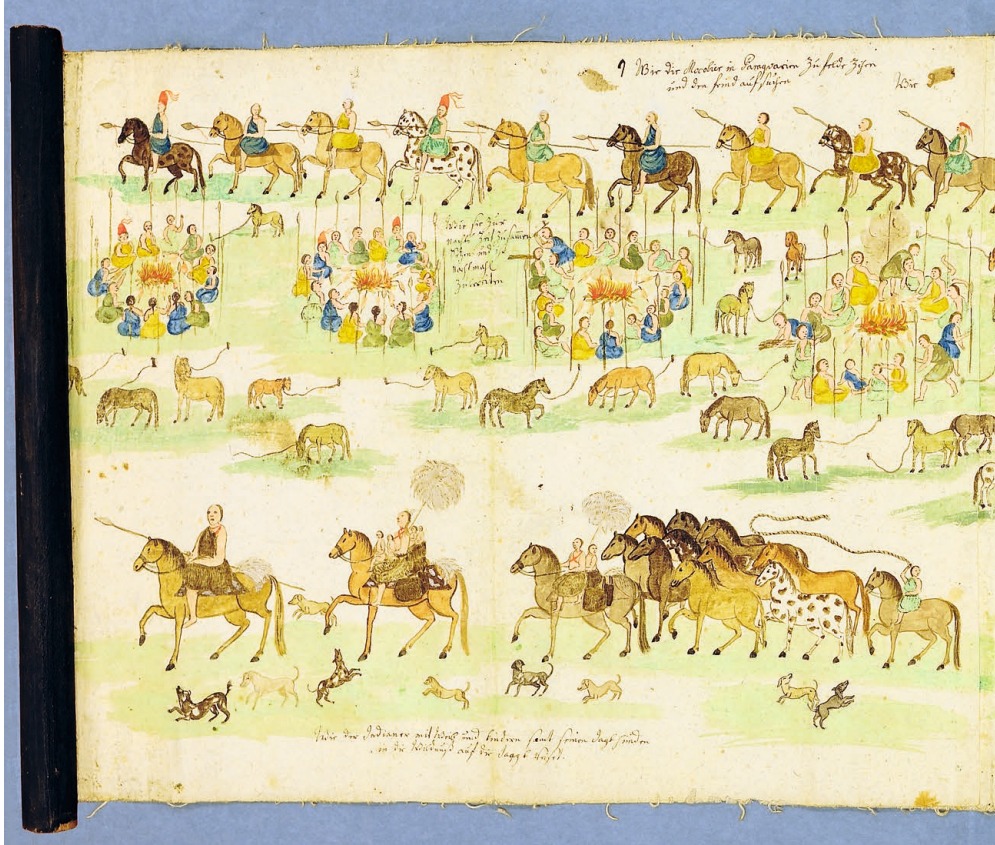 Wie die Mocobier in Paraquarien zu felde Zihen
und den feind aufsuchen
Wie
Wie sie Ihre
nacht Zeit Zusamen
und
Nachtmahl
Zubereiten
Wie der Indianer mit Weib und Kindern samt seinen Jagthunden
in die auf die Jagt